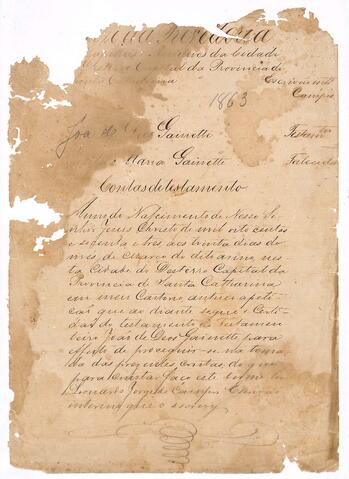 Provedoria
da Cidade
Capital da Provincia de
Catharina Escrivão int.
Campos
1863
João de Deos Gainette Testamtro
Maria Gainette Falecida
Contas de testamento
Anno do Nascimento de Nosso Se
nhor Jesus Christo de mil oito centos
e sessenta e tres aos trinta dias do
mes de Março do dito anno nes
ta Cidade do Desterro Capital da
Provincia de Santa Catharina
em meu Cartorio autuei a peti
ção que ao diante segue e Certi
dão do testamento do Testamen
teiro João de Deos Gainette para
effeito de proceguir-se na toma
da das prezentes Contas, do que
para constar faço este termo Eu
Leonardo Jorge de Campos Escrivão
interino que o escrevy